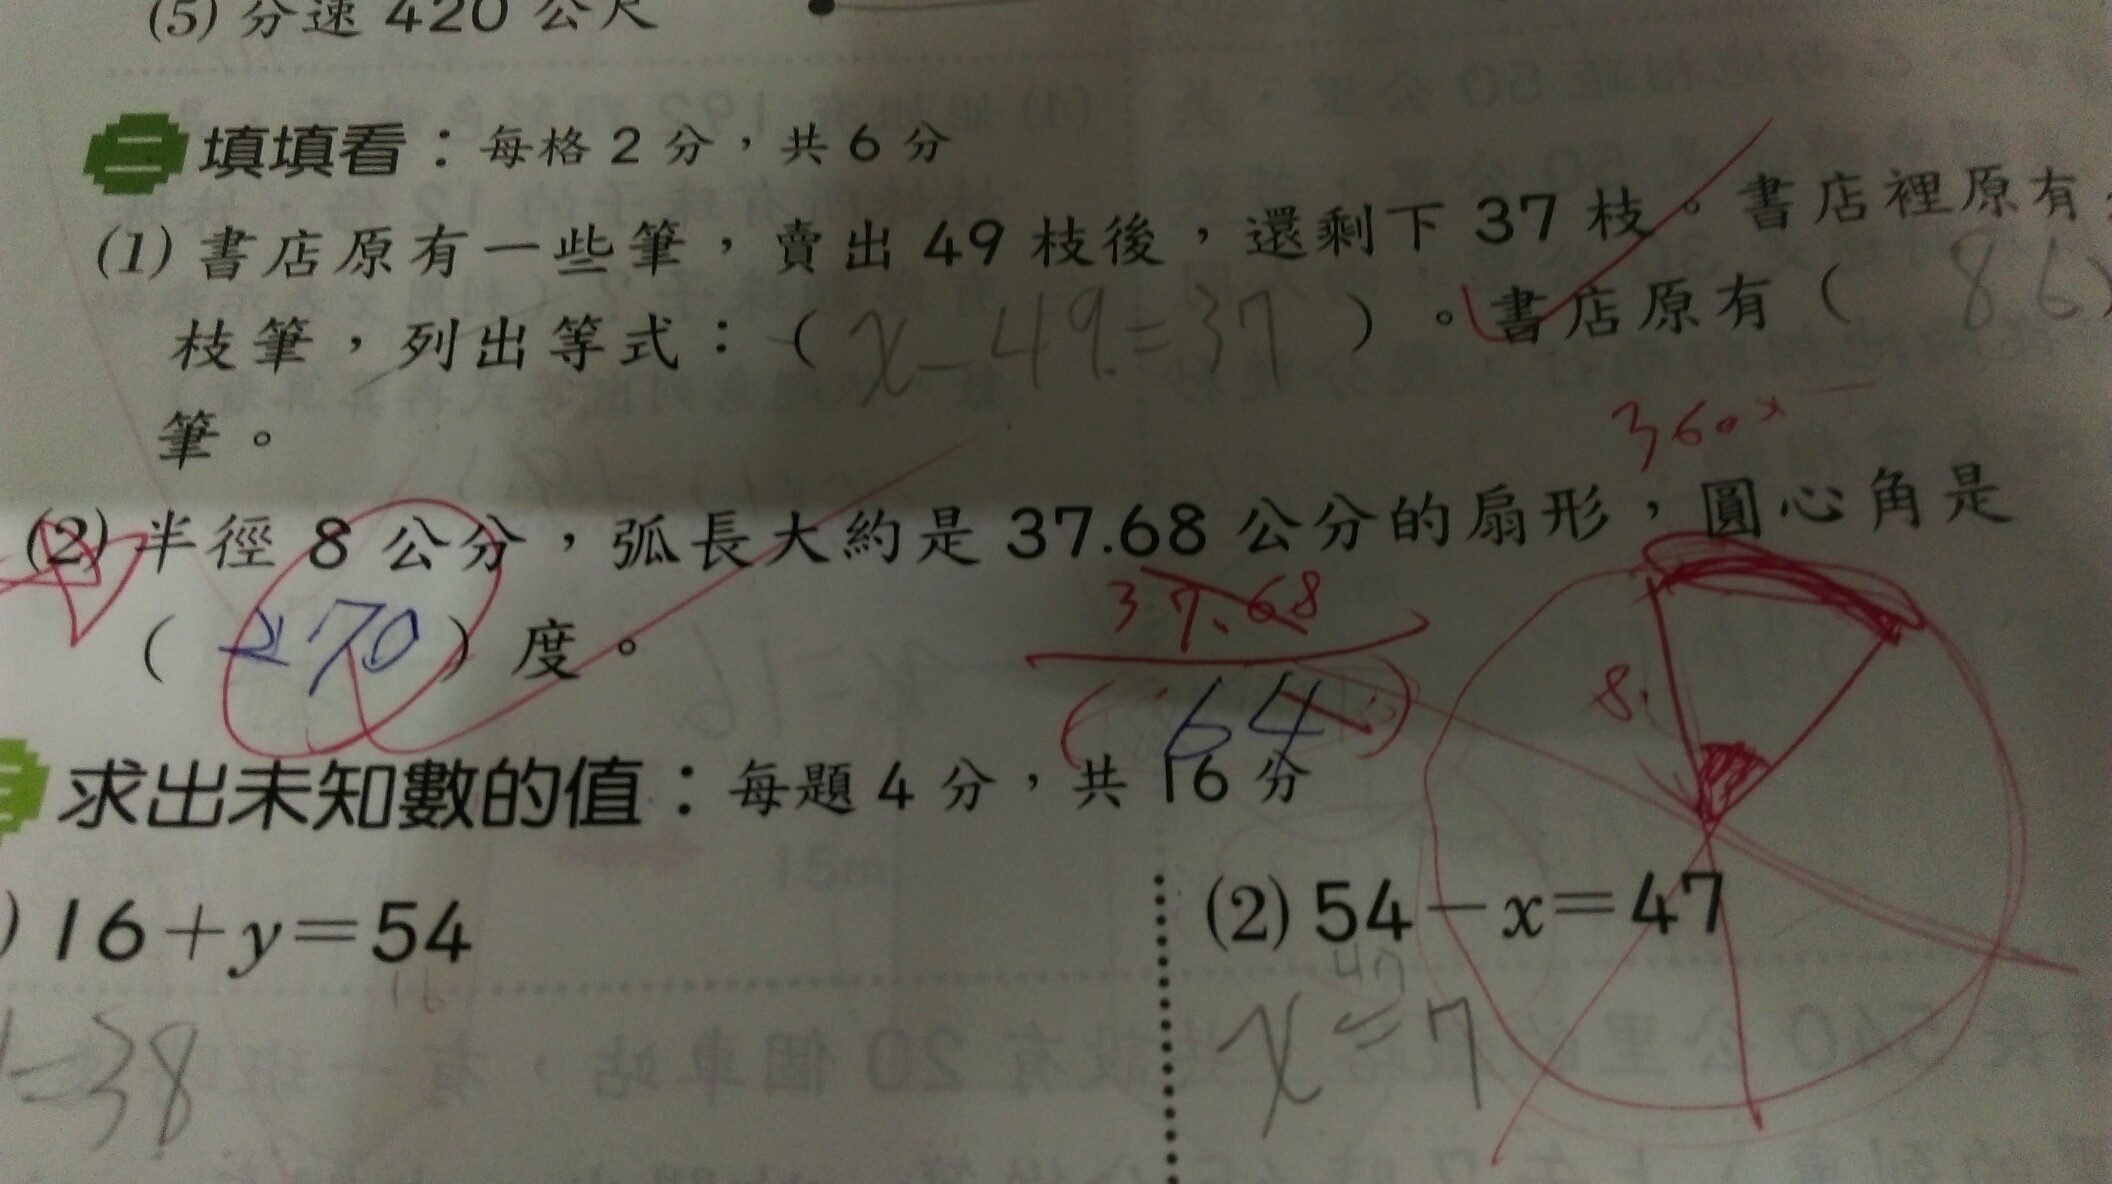 (5) 分速 420 公尺
二 填填看：每格 2 分，共 6 分
(1) 書店原有一些筆，賣出 49 枝後，還剩下 37 枝。書店裡原有
枝筆，列出等式：( x-49=37 )。書店原有 ( 86 )
筆。
360×
(2) 半徑 8 公分，弧長大約是 37.68 公分的扇形，圓心角是
( 270 ) 度。
37.68
( 64 )
8
求出未知數的值：每題 4 分，共 16 分
) 16+y=54
16
=38
(2) 54-x=47
47
x=7